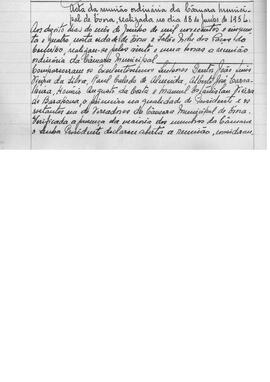 Acta da reunião ordinaria da Câmara Munici-
pal de Évora, realizada no dia 18 de Junho de 1954.
Aos dezoito dias do mês de Junho de mil novecentos e cinquen-
ta e quatro nesta cidade de Évora e Salão Nobre dos Paços do
Concelho, realizou-se pelas vinte e uma horas a reunião
ordinária da Câmara Municipal.
Compareceram os Excelentissimos Senhores Doutor João Luis
Vieira da Silva, de Almeida, Alberto José
Augusto da Costa e Manuel
de Barahona, o primeiro na qualidade de Presidente e os
restantes na de Vereadores da Câmara Municipal de Évora.
Verificada a presença da maioria dos membros da Câmara
o Senhor Presidente declarou aberta a reunião,